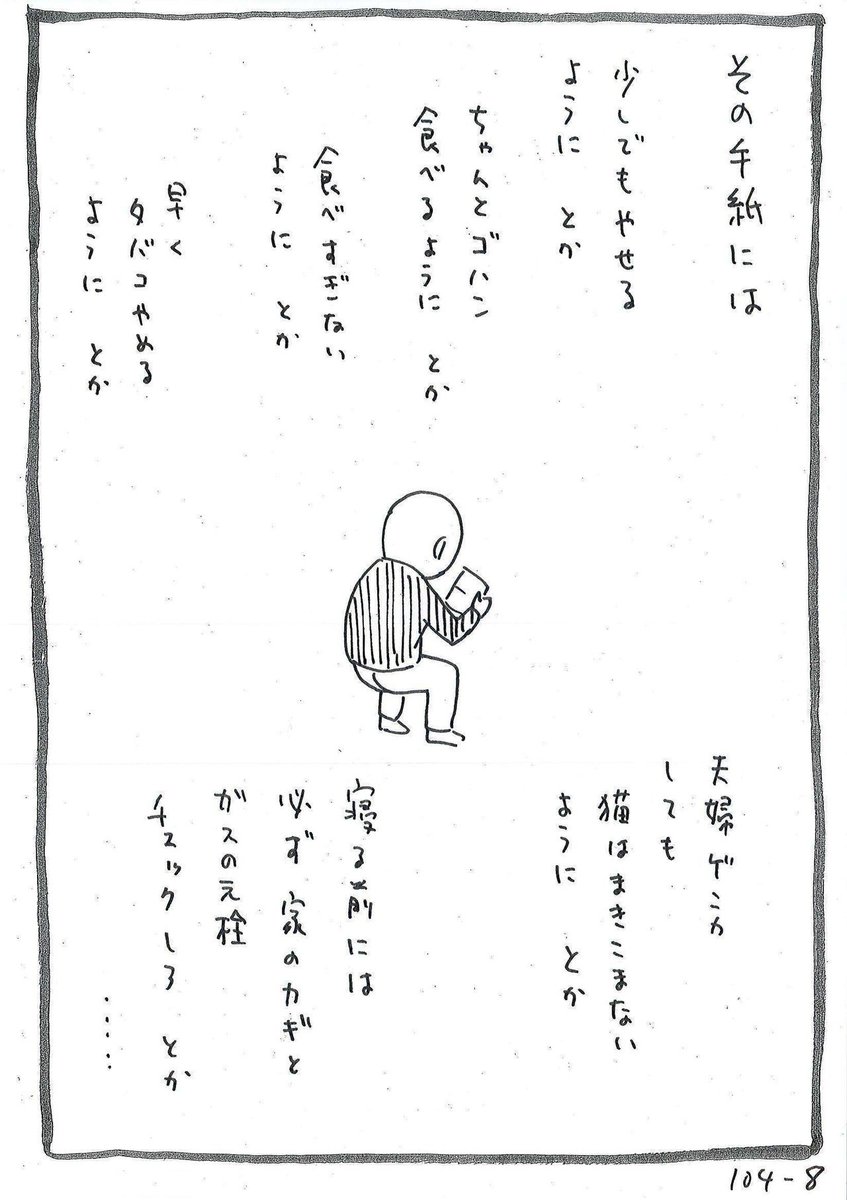 その手紙には
少しでもやせる
ように とか
ちゃんとゴハン
食べるように とか
食べすぎない
ように とか
早く
タバコやめる
ように とか
夫婦ゲンカ
しても
猫はまきこまない
ように とか
寝る前には
必ず家のカギと
ガスの元栓
チェックしろ とか
.....
104-8